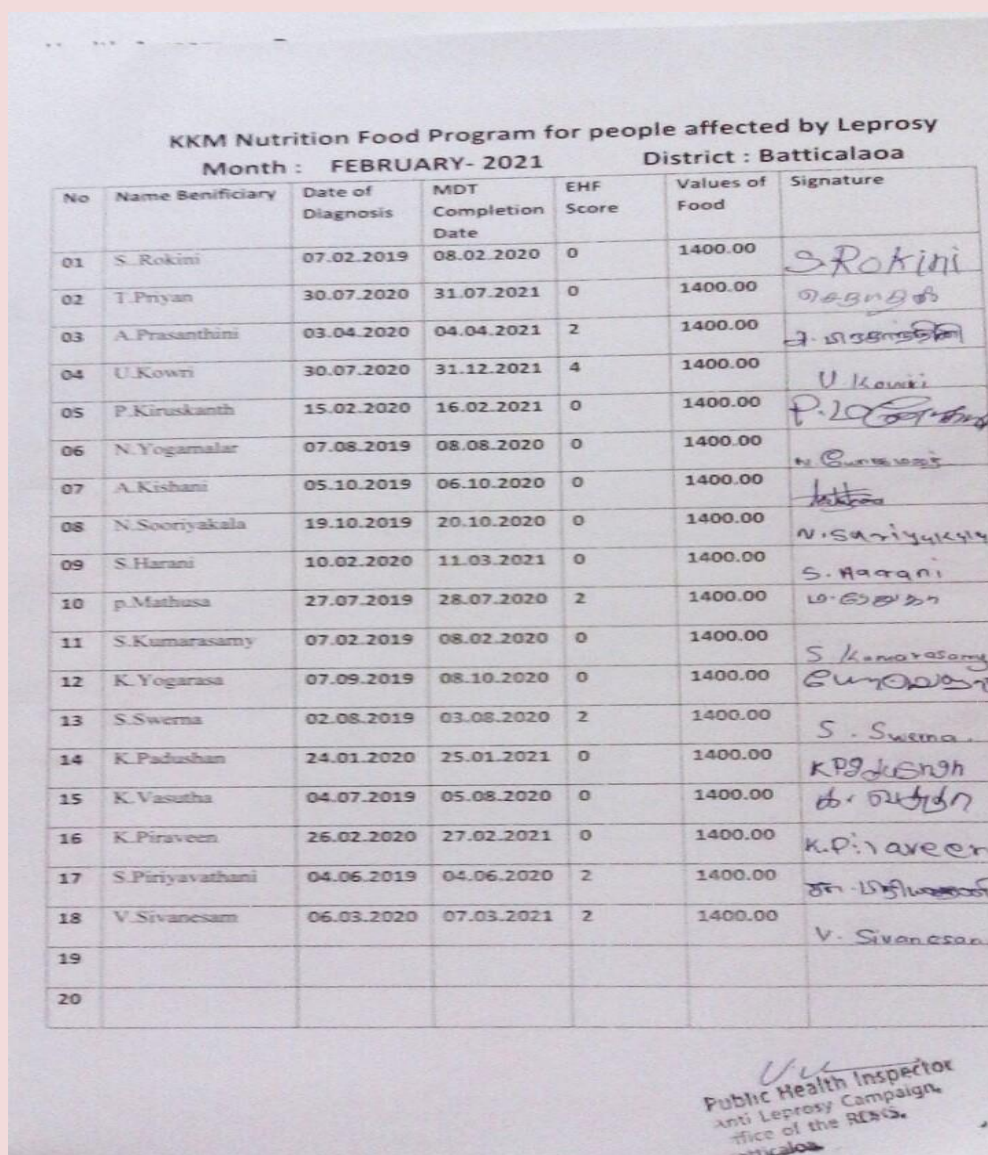 KKM Nutrition Food Program for people affected by Leprosy
Month : FEBRUARY- 2021 District : Batticalaoa
No Name Benificiary Date of Diagnosis MDT Completion Date EHF Score Values of Food Signature
01 S..Rokini 07.02.2019 08.02.2020 0 1400.00 S.Rokini
02 T.Priyan 30.07.2020 31.07.2021 0 1400.00
03 A.Prasanthini 03.04.2020 04.04.2021 2 1400.00
04 U.Kowri 30.07.2020 31.12.2021 4 1400.00 U Kowri
05 P.Kiruskanth 15.02.2020 16.02.2021 0 1400.00
06 N.Yogamalar 07.08.2019 08.08.2020 0 1400.00
07 A.Kishani 05.10.2019 06.10.2020 0 1400.00
08 N.Sooriyakala 19.10.2019 20.10.2020 0 1400.00
09 S.Harani 10.02.2020 11.03.2021 0 1400.00 S. Harani
10 p.Mathusa 27.07.2019 28.07.2020 2 1400.00
11 S.Kumarasamy 07.02.2019 08.02.2020 0 1400.00 S Kumarasamy
12 K.Yogarasa 07.09.2019 08.10.2020 0 1400.00
13 S.Swerna 02.08.2019 03.08.2020 2 1400.00 S. Swerna.
14 K.Padushan 24.01.2020 25.01.2021 0 1400.00
15 K.Vasutha 04.07.2019 05.08.2020 0 1400.00
16 K.Piraveen 26.02.2020 27.02.2021 0 1400.00 K.Piraveen
17 S.Piriyavathani 04.06.2019 04.06.2020 2 1400.00
18 V.Sivanesam 06.03.2020 07.03.2021 2 1400.00 V. Sivanesan
19
20
Public Health Inspector
Anti Leprosy Campaign,
ffice of the RDHS,
atticaloa